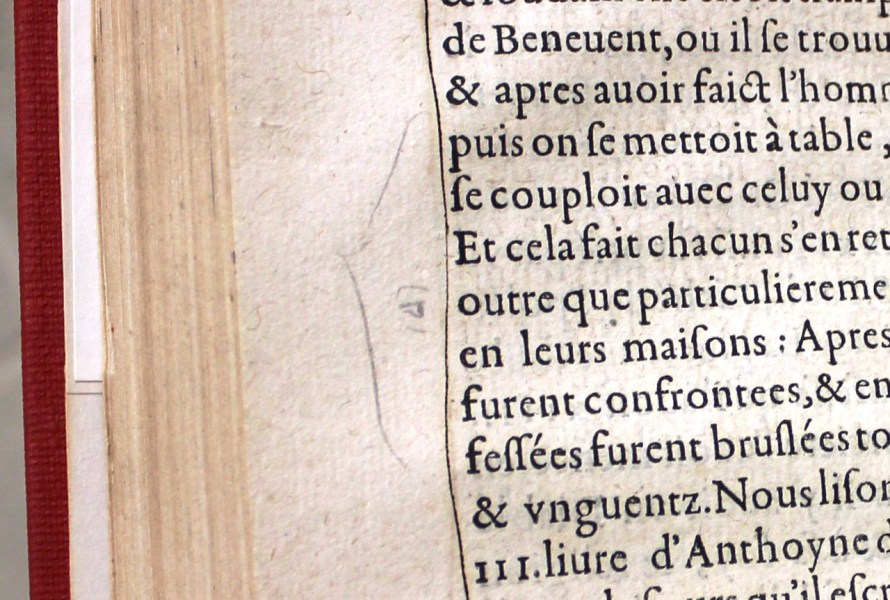 de Beneuent, ou il ſe trouu
& apres auoir faict l'hom
puis on ſe mettoit à table,
ſe couploit auec celuy ou
Et cela fait chacun s'en ret
outre que particuliereme
en leurs maiſons : Apres
furent confrontees, & en
feſſées furent bruſlées to
& vnguentz. Nous liſon
III. liure d'Anthoyne d
qu'il eſcr